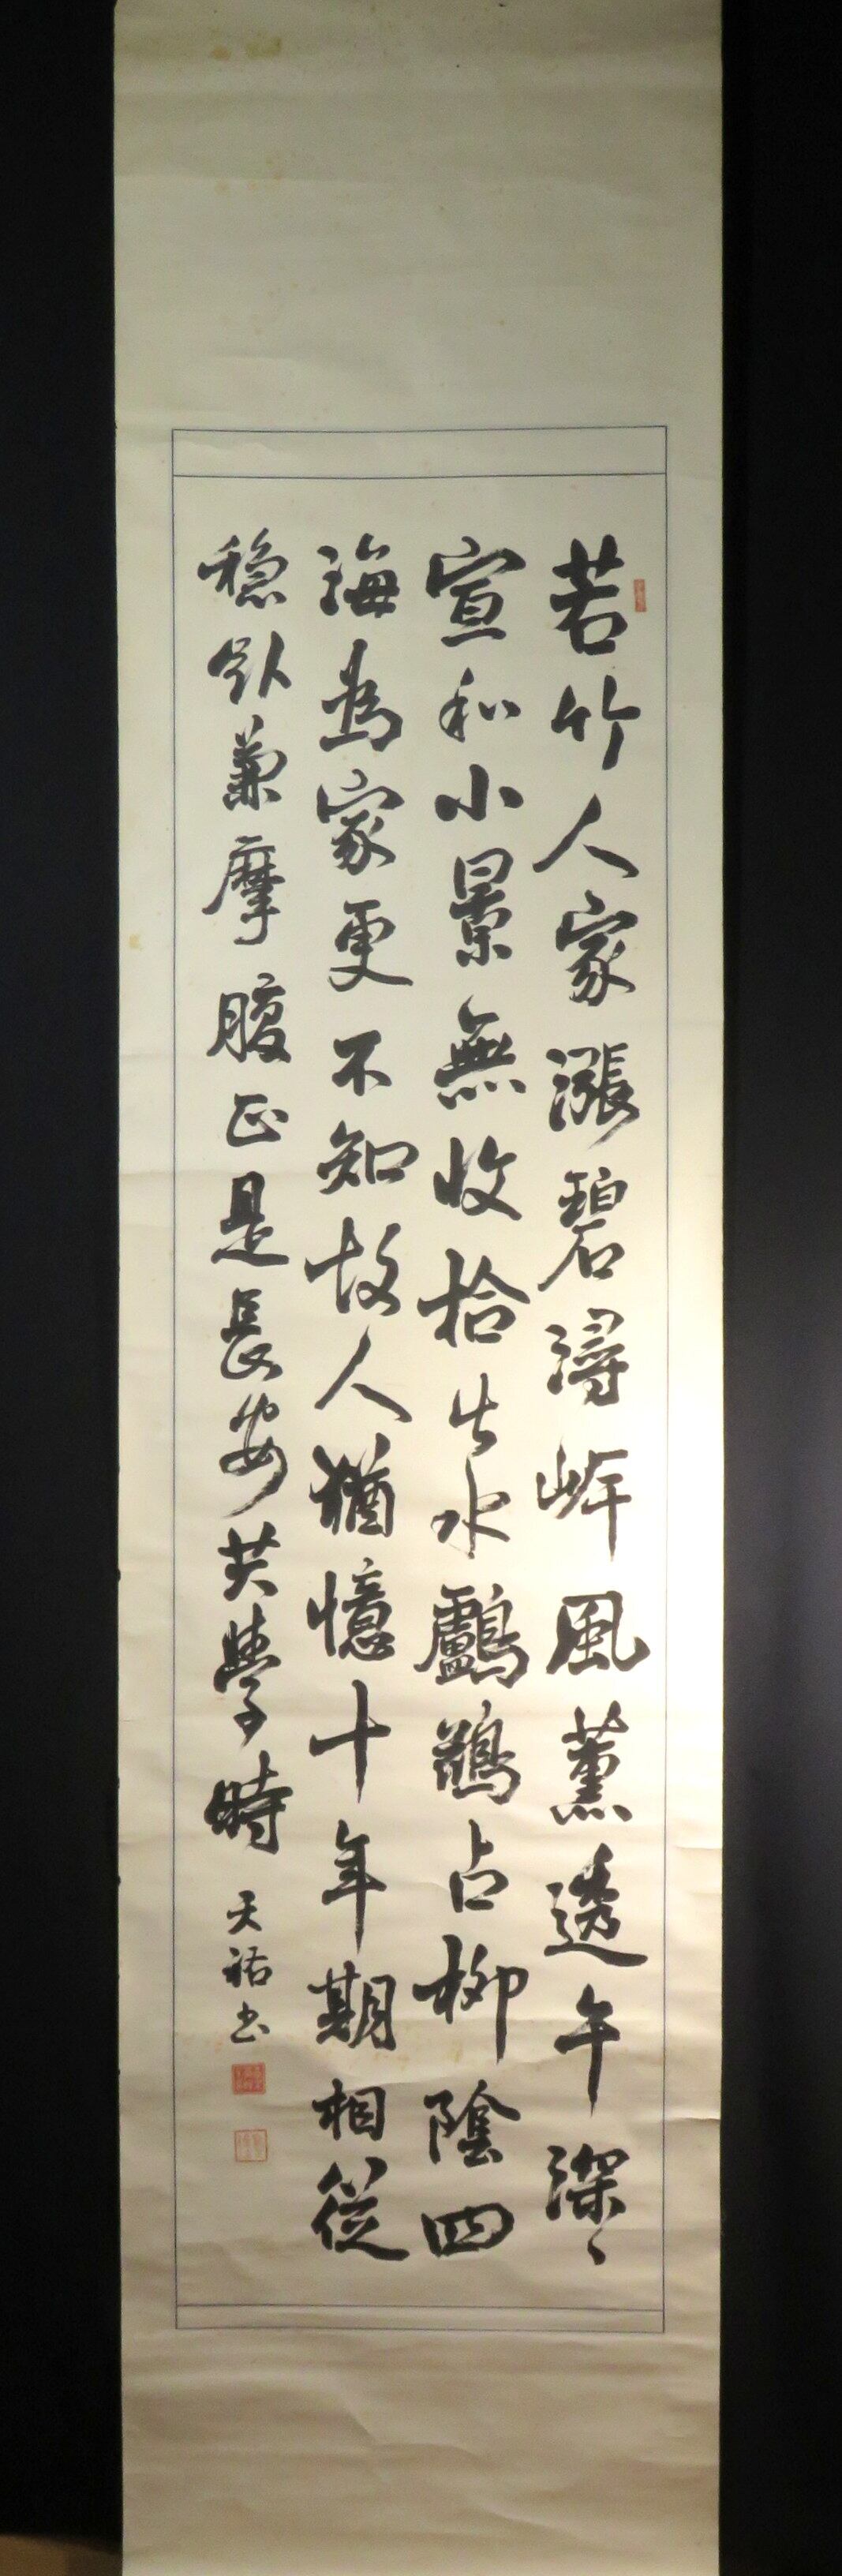 若竹人家漲碧潯峠風薫透午深〻
宣和小景無收拾出水鸕鶿占柳陰四
海為家更不知故人猶憶十年期相從
穏臥兼摩腹正是長安共學時
天祐书